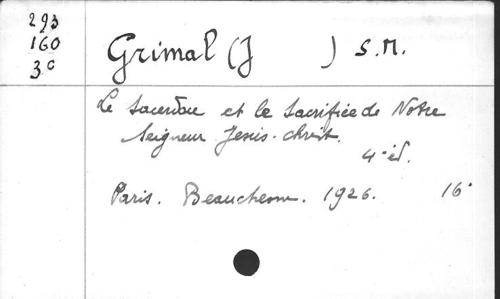 293
160
3c
Grimal (J ) S.M.
Le Sacerdoce et le Sacrifice de Notre
Seigneur Jésus-Christ.
4e éd.
Paris. Beauchesne. 1926. 16°